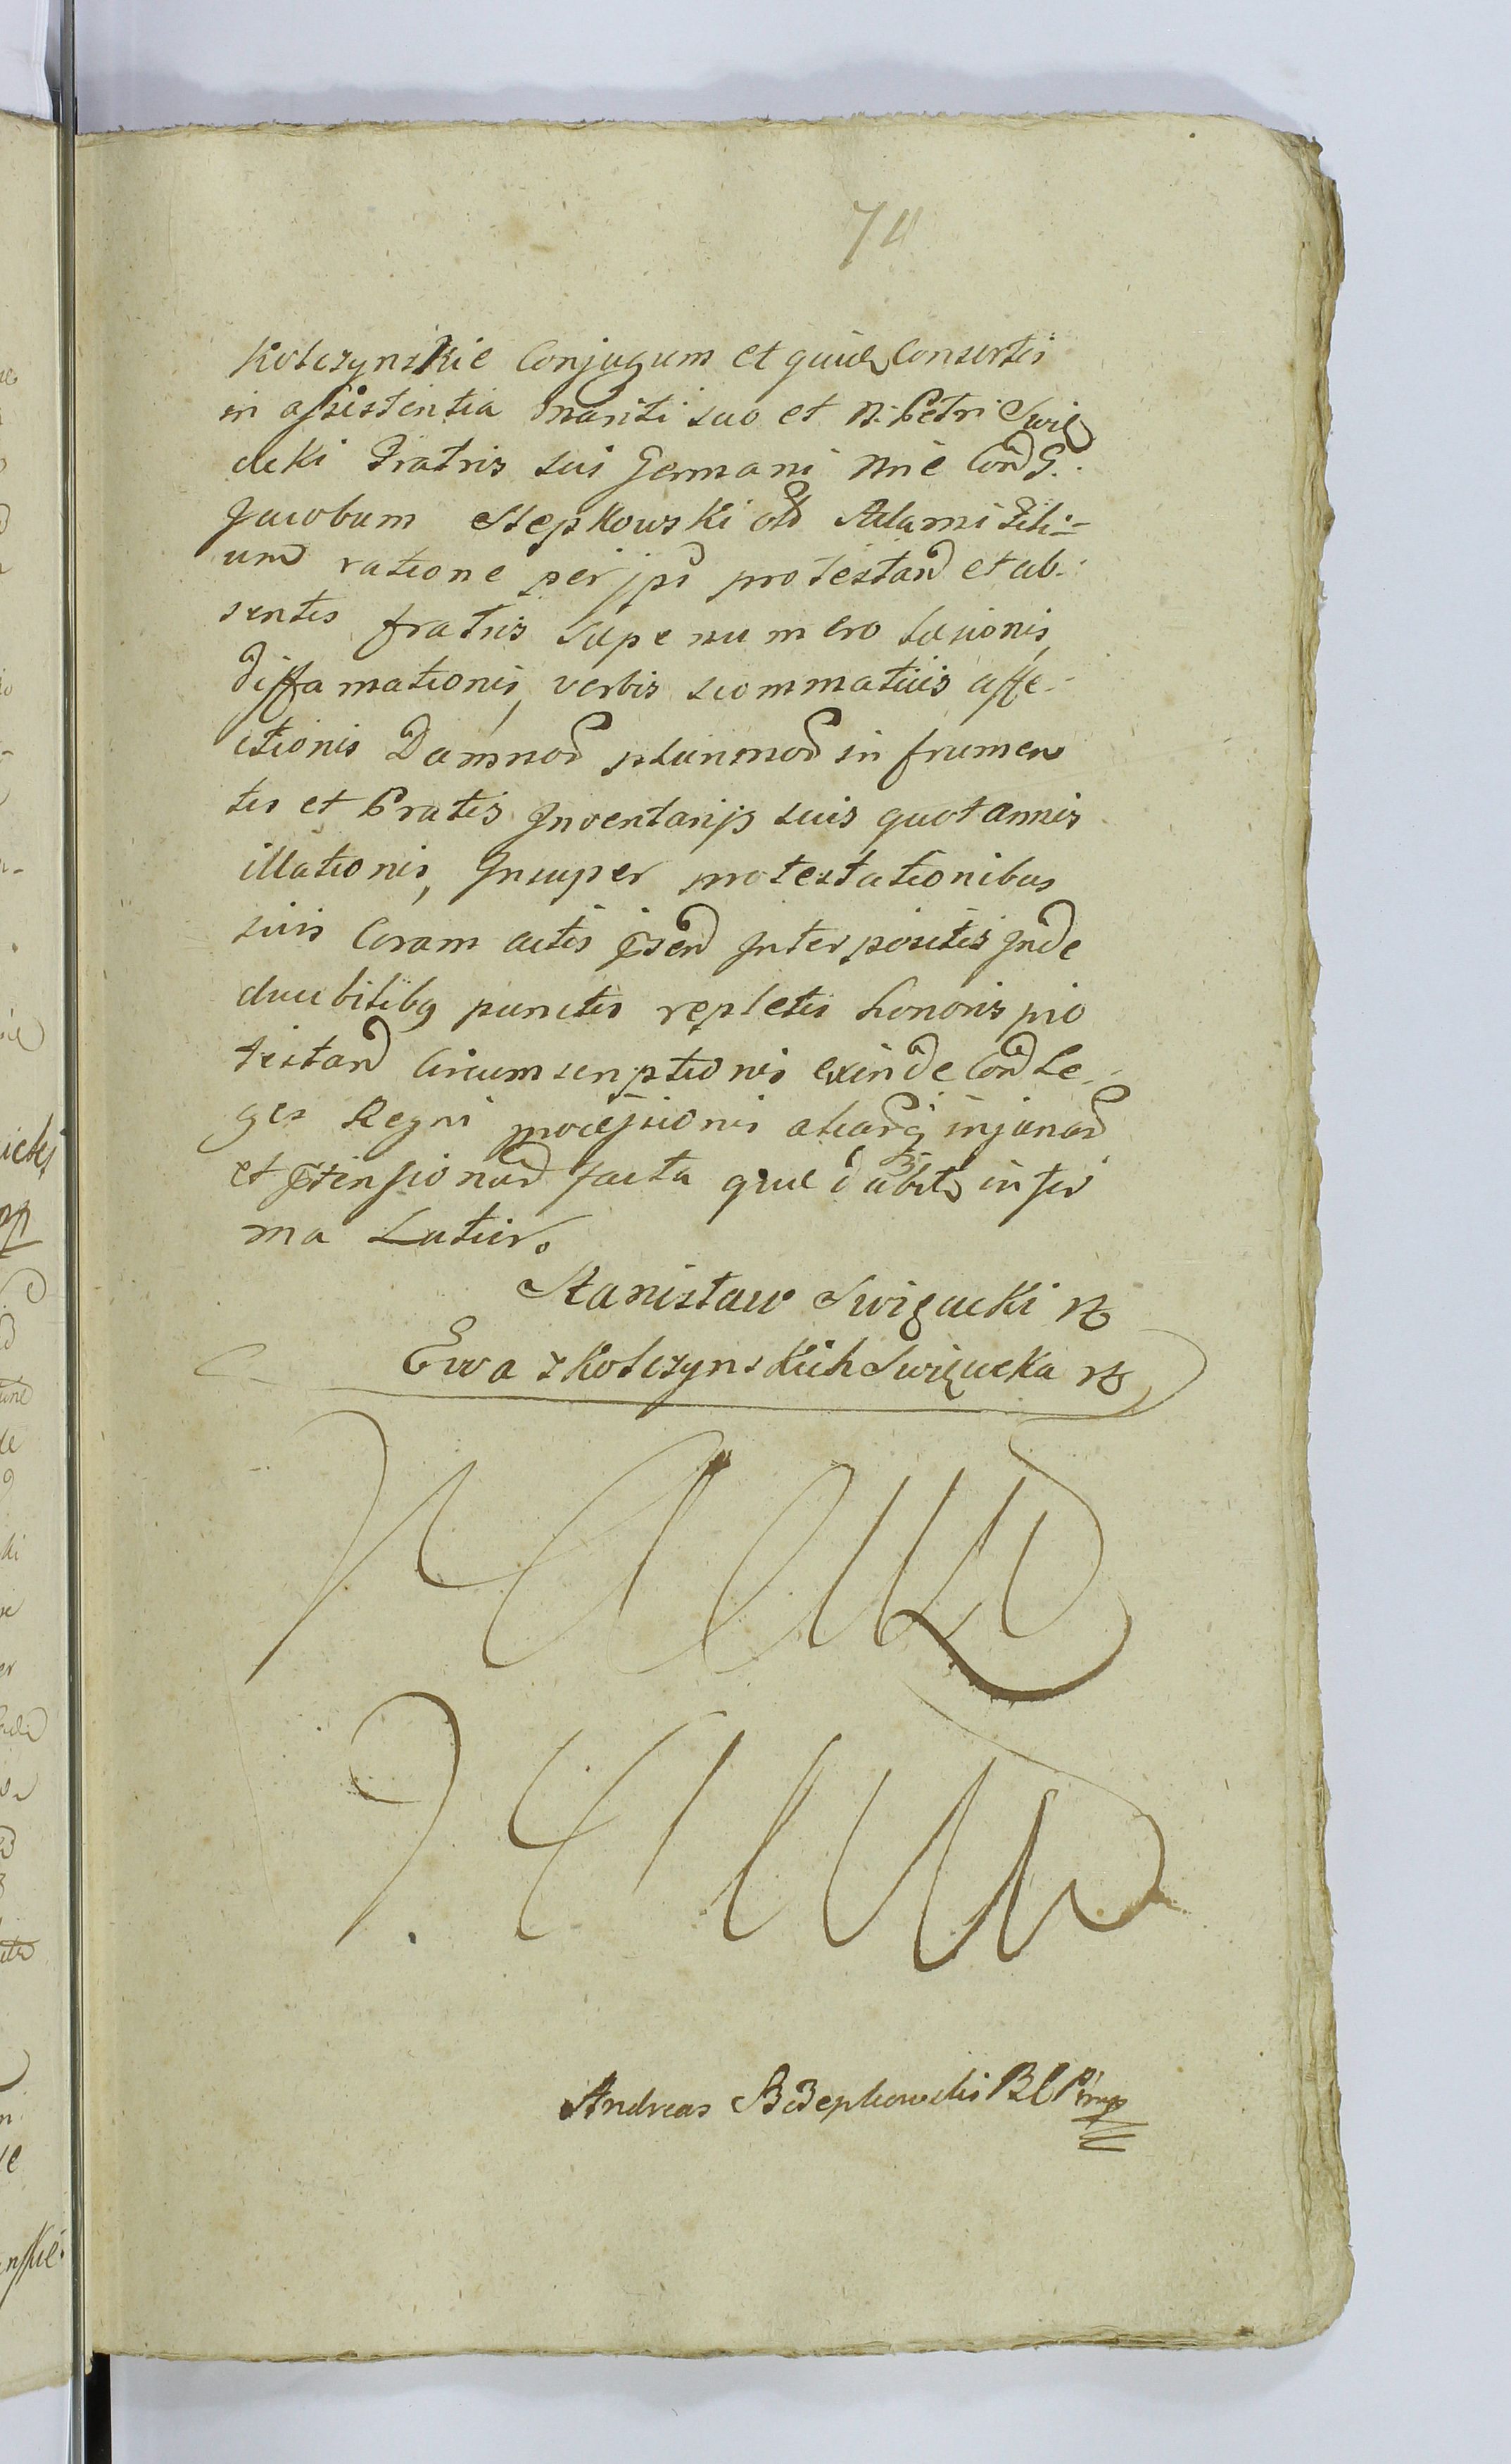 74
Kołczynskie Conjugum et quidem Consortis
in assistentia mariti suo et N: Petri Swię
cicki Fratris sui Germani nnie Cond G.
Jacobum Stepkowski old Adami Fili=
um ratione per ipsi protestand et ab-
sentis fratris supe numero Læsionis,
Diffamationis, verbis scommaticis affe-
ctionis Damnod plurimod in frumen
tis et Pratis Inventarijs suis quotannis
illationis, Insuper protestationibus
suis Coram actis psend Interpositis Inde
ducibilibq punctis repletis honoris pro
testand Circumscriptionis exinde Cond Le-
ges Regni processionis aliardq injuriard
et ptensionud facta que dabit in fir
ma Latior.
Stanisław Swięcicki
Ewa z Kołczynskich Swięcicka
Andreas